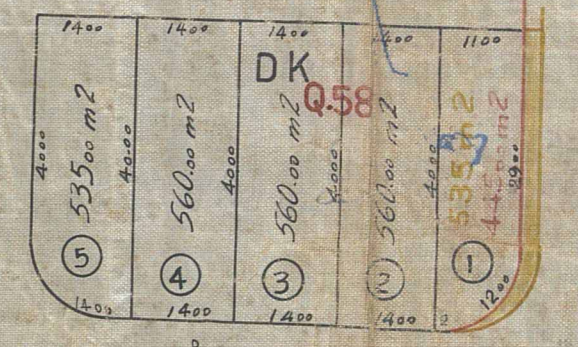 1400 1400 1400 1400 1100
DK
Q.58
4000 535.00 m2 4000 560.00 m2 4000 560.00 m2 4000 560.00 m2 4000 535 m2 445.00 m2 2900
5 4 3 2 1
1400 1400 1400 1400 2 1200